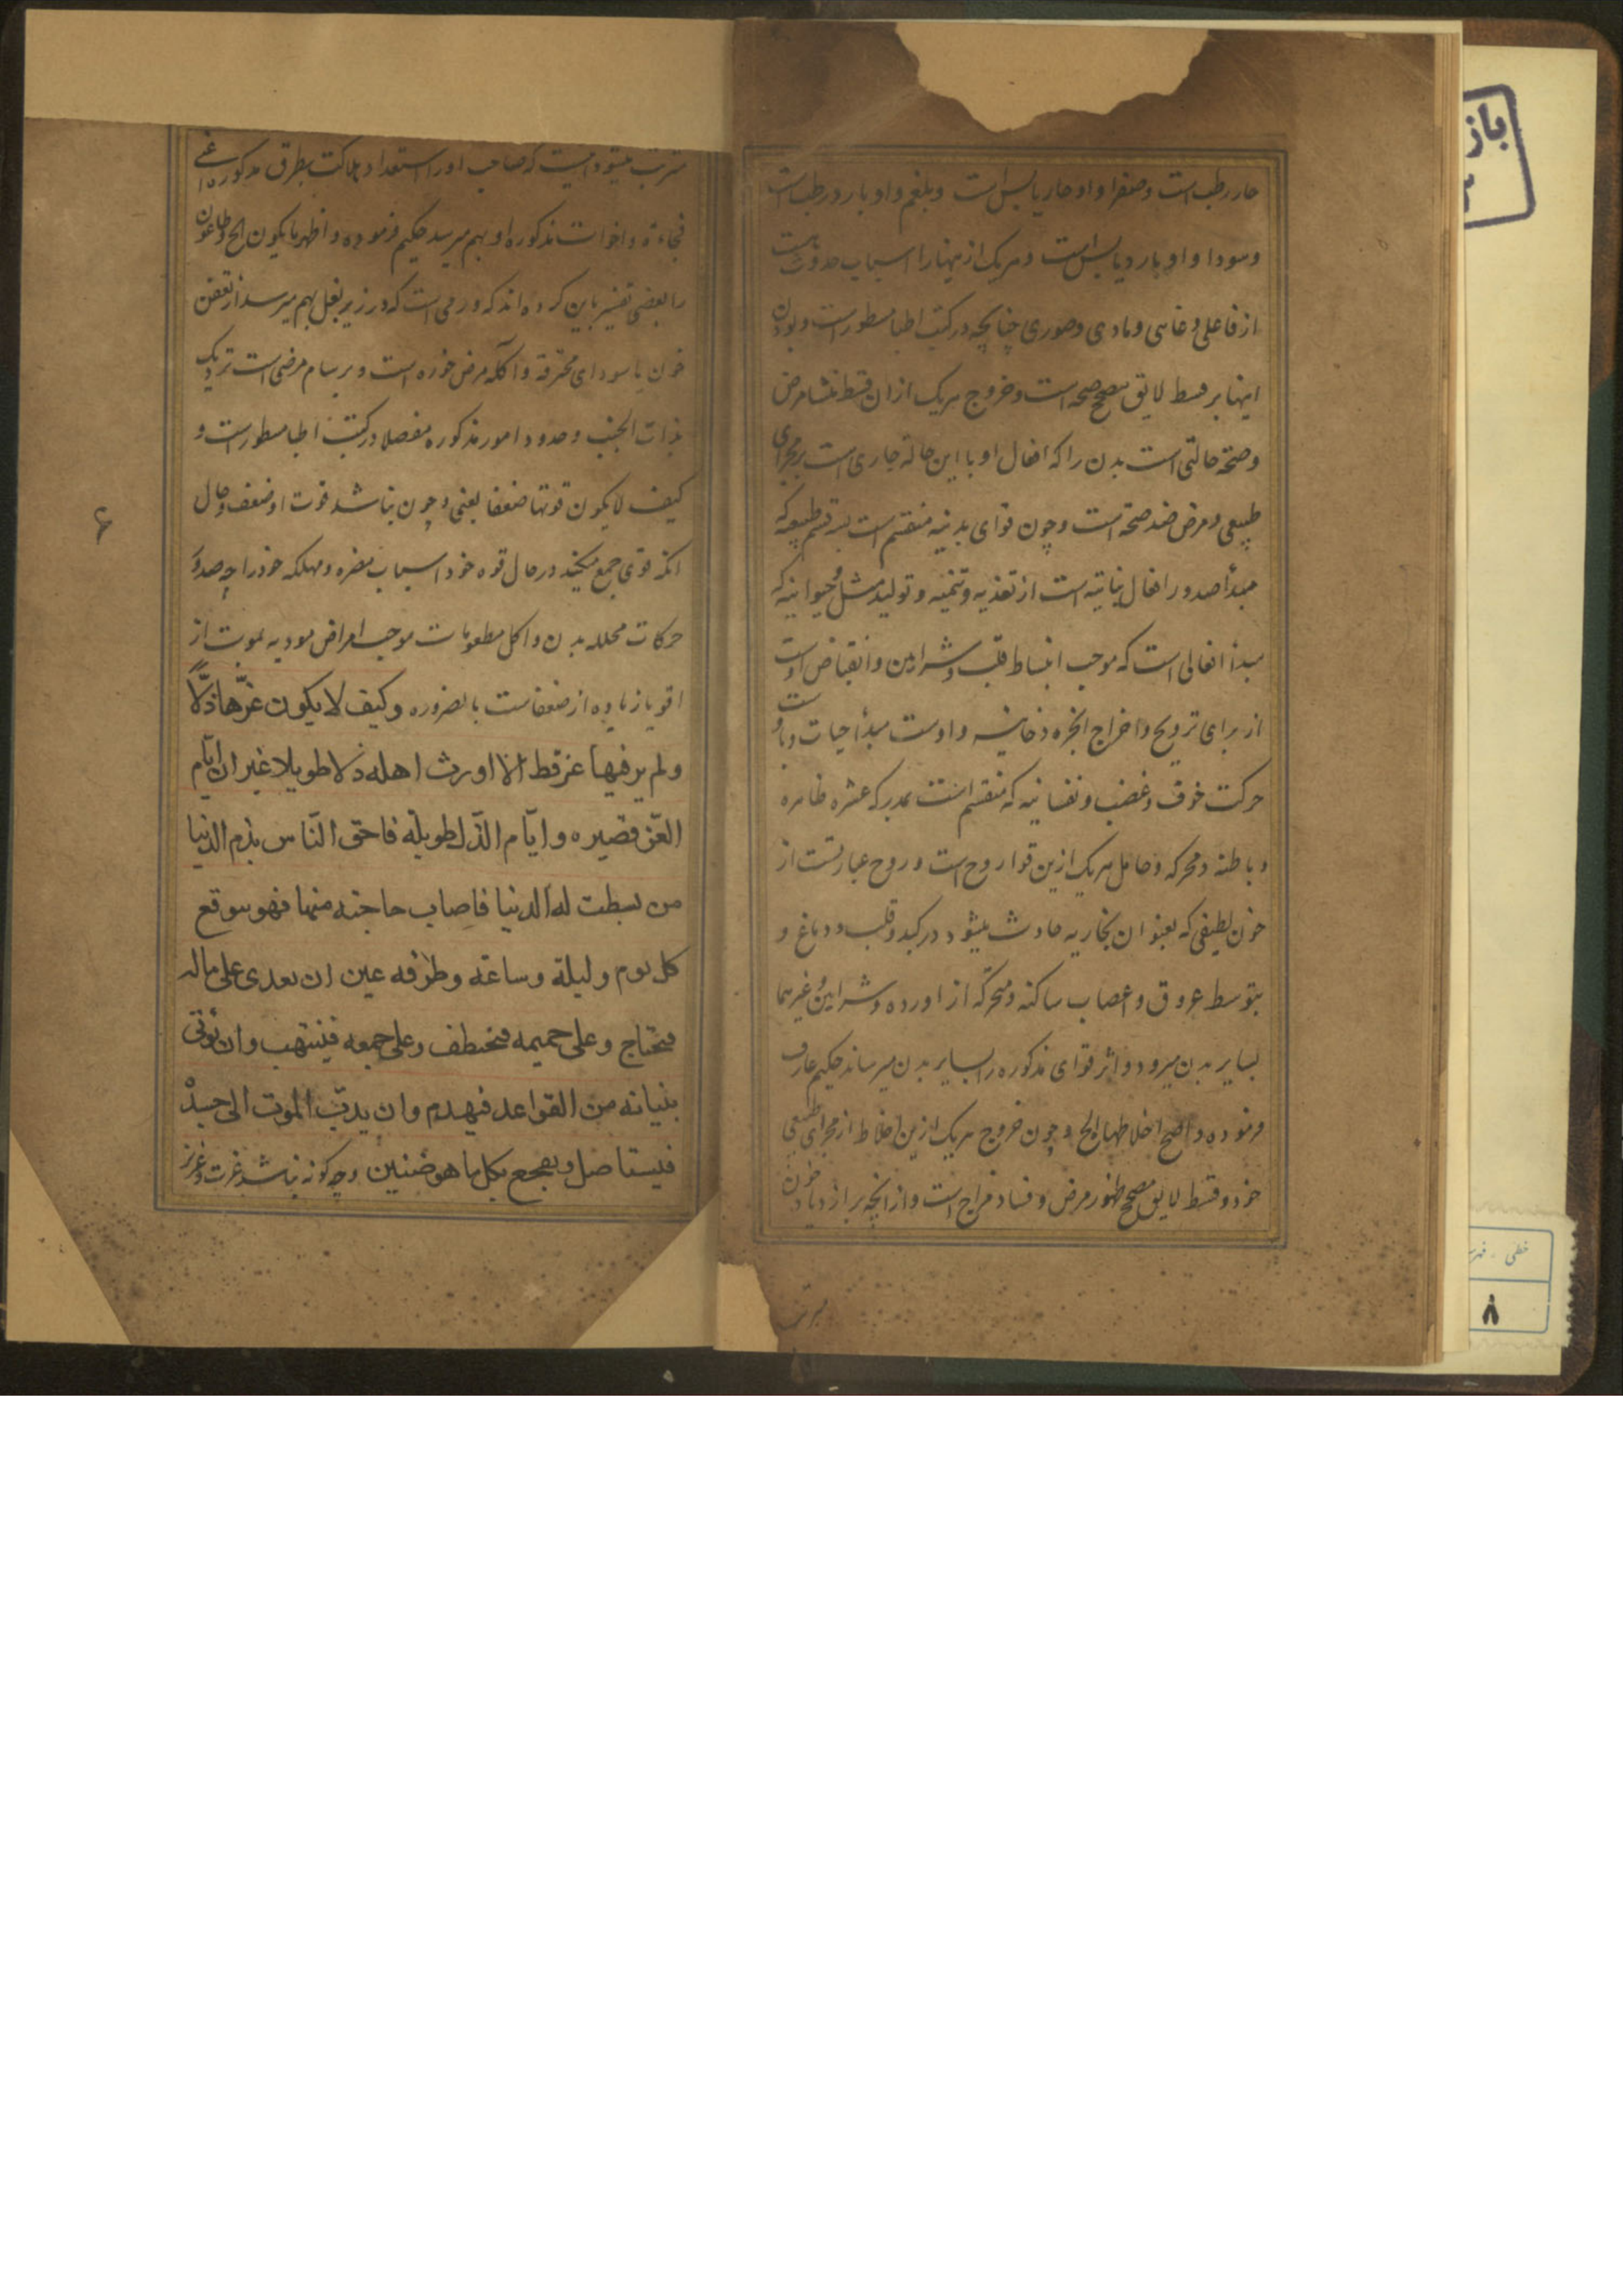 حار رطب است و صفرا و او حار یابس است و بلغم و او بارد رطب است
و سودا و او بارد یابس است و هریک از ینها را اسباب حدوث است
از فاعلی و غایی و مادی و صوری چنانچه در کتب اطبا مسطور است و بودن
اینها بر قسط لایق مصحح صحه است و خروج هریک از ان قسط منشا مرض
و صحة حالتی است بدن را که افعال او با این حالة جاری است بر مجرای
طبیعی و مرض ضد صحة است و چون قوای بدنیه منقسم است بسه قسم طبیعیه که
مبدأ صدور افعال نباتیه است از تغذیه و تنمیه و تولید مثل و حیوانیه که
مبدأ افعالی است که موجب انبساط قلب و شرایین و انقباض اوست
از برای ترویح و اخراج ابخره دخانیه و اوست مبدأ حیات و مبدأ
حرکت خوف و غضب و نفسانیه که منقسم است بمدرکه عشره ظاهره
و باطنه و محرکه و حامل هریک ازین قوا روح است و روح عبارتست از
خون لطیفی که بعنوان بخاریه حادث میشود در کبد و قلب و دماغ و
بتوسط عروق و اعصاب ساکنه و متحرکه از اورده و شرایین و غیرهما
بسایر بدن میرود و اثر قوای مذکوره را بسایر بدن میرساند حکیم عارف
فرموده و اصح اخلاطها الخ و چون خروج هریک ازین اخلاط از مجرای طبیعی
خود و قسط لایق مصحح ظهور مرض و فساد مزاج است و از انچه بر ازدیاد خون
مترتب
مترتب میشود اینست که صاحب او را استعداد هلاکت بطرق مذکوره اعنی
فجاءة و اخوات مذکوره او بهم میرسد حکیم فرموده و اظهر ما یکون الخ و طاعون
را بعضی تفسیر باین کرده اند که ورمی است که در زیر بغل بهم میرسد از تعفن
خون یا سودای محترقه و آکله مرض خوره است و برسام مرضی است نزدیک
بذات الجنب و حدود امور مذکوره مفصلا در کتب اطبا مسطور است و
کیف لا یکون قوتها ضعفا یعنی و چون نباشد قوت او ضعف و حال
انکه قوی جمع میکند در حال قوه خود اسباب مضره و مهلکه خود را چه صدور
حرکات محلله بدن و اکل مطعومات موجب امراض مودیه بموت از
اقویا زیاده از ضعفاست بالضروره وکیف لا یکون عزّها ذلّاً
ولم یر فیها عز قط الا اورث اهله ذلا طویلا غیر ان ایّام
العّز قصیره و ایّام الذّل طویلة فاحق النّاس بذم الدنیا
من بسطت له الدنیا فاصاب حاجته منها فهو یتوقع
کل یوم ولیلة وساعة وطرفه عین ان یعدی علی ماله
فیحتاج وعلی حمیمه فیختطف وعلی جمعه فینتهب وان یؤتی
بنیانه من القواعد فیهدم وان یدبّ الموت الی جسده
فیستاصل ویفجع بکل ما هو ضنین و چگونه نباشد عزت و عزیز
۶
باز
خطی . فهر
۸